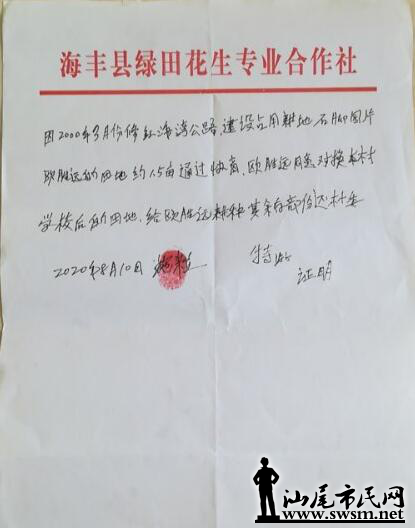 海丰县绿田花生专业合作社
因2000年3月份修红海湾公路,建设占用耕地石脚围片
欧胜远的田地约1.5亩通过协商,欧胜远同意对换本村
学校后的田地,给欧胜远耕种其余部份还村委
特此
2020年8月10日
证明
汕尾市民网
www.swsm.net